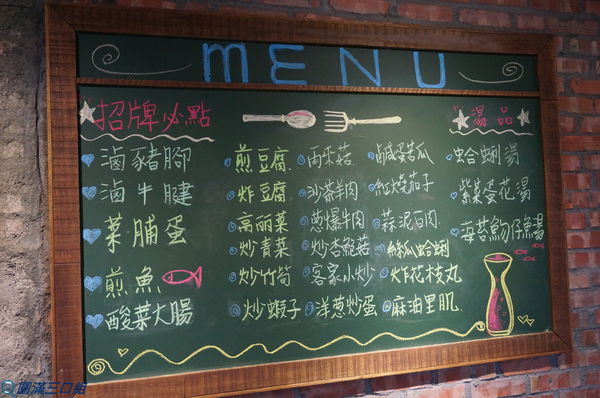 MENU
招牌必點
滷豬腳
滷牛腱
菜脯蛋
煎魚
酸菜大腸
煎豆腐
炸豆腐
高丽菜
炒青菜
炒竹筍
炒蝦子
雨來菇
沙茶羊肉
蔥爆牛肉
炒杏鮑菇
客家小炒
洋蔥炒蛋
鹹蛋苦瓜
紅燒茄子
蒜泥白肉
絲瓜蛤蜊
炸花枝丸
麻油里肌
湯品
蛤蜊湯
紫菜蛋花湯
海苔魩仔魚湯
圓滿三口組